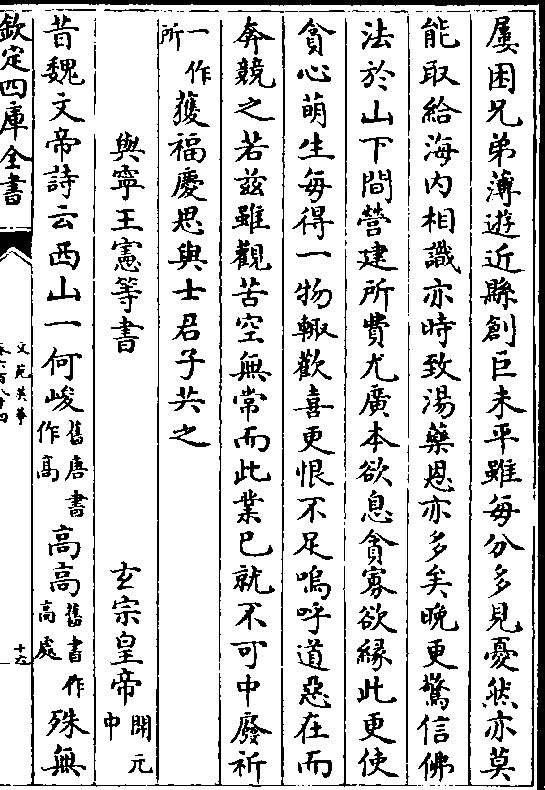 屢困兄弟薄遊近縣創巨未平雖每分多見憂然亦莫
能取給海内相識亦時致湯藥恩亦多矣晚更驚信佛
法於山下間營建所費尤廣本欲息貪寡欲縁此更使
貪心萌生每得一物輙歡喜更恨不足嗚呼道惡在而
奔競之若兹雖觀苦空無常而此業已就不可中廢祈
一作所獲福慶思與士君子共之
與寧王憲等書 玄宗皇帝開元中
昔魏文帝詩云西山一何峻舊唐書作高高高舊書作高處殊無
欽定四庫全書
文苑英華
卷六百八十四
十六